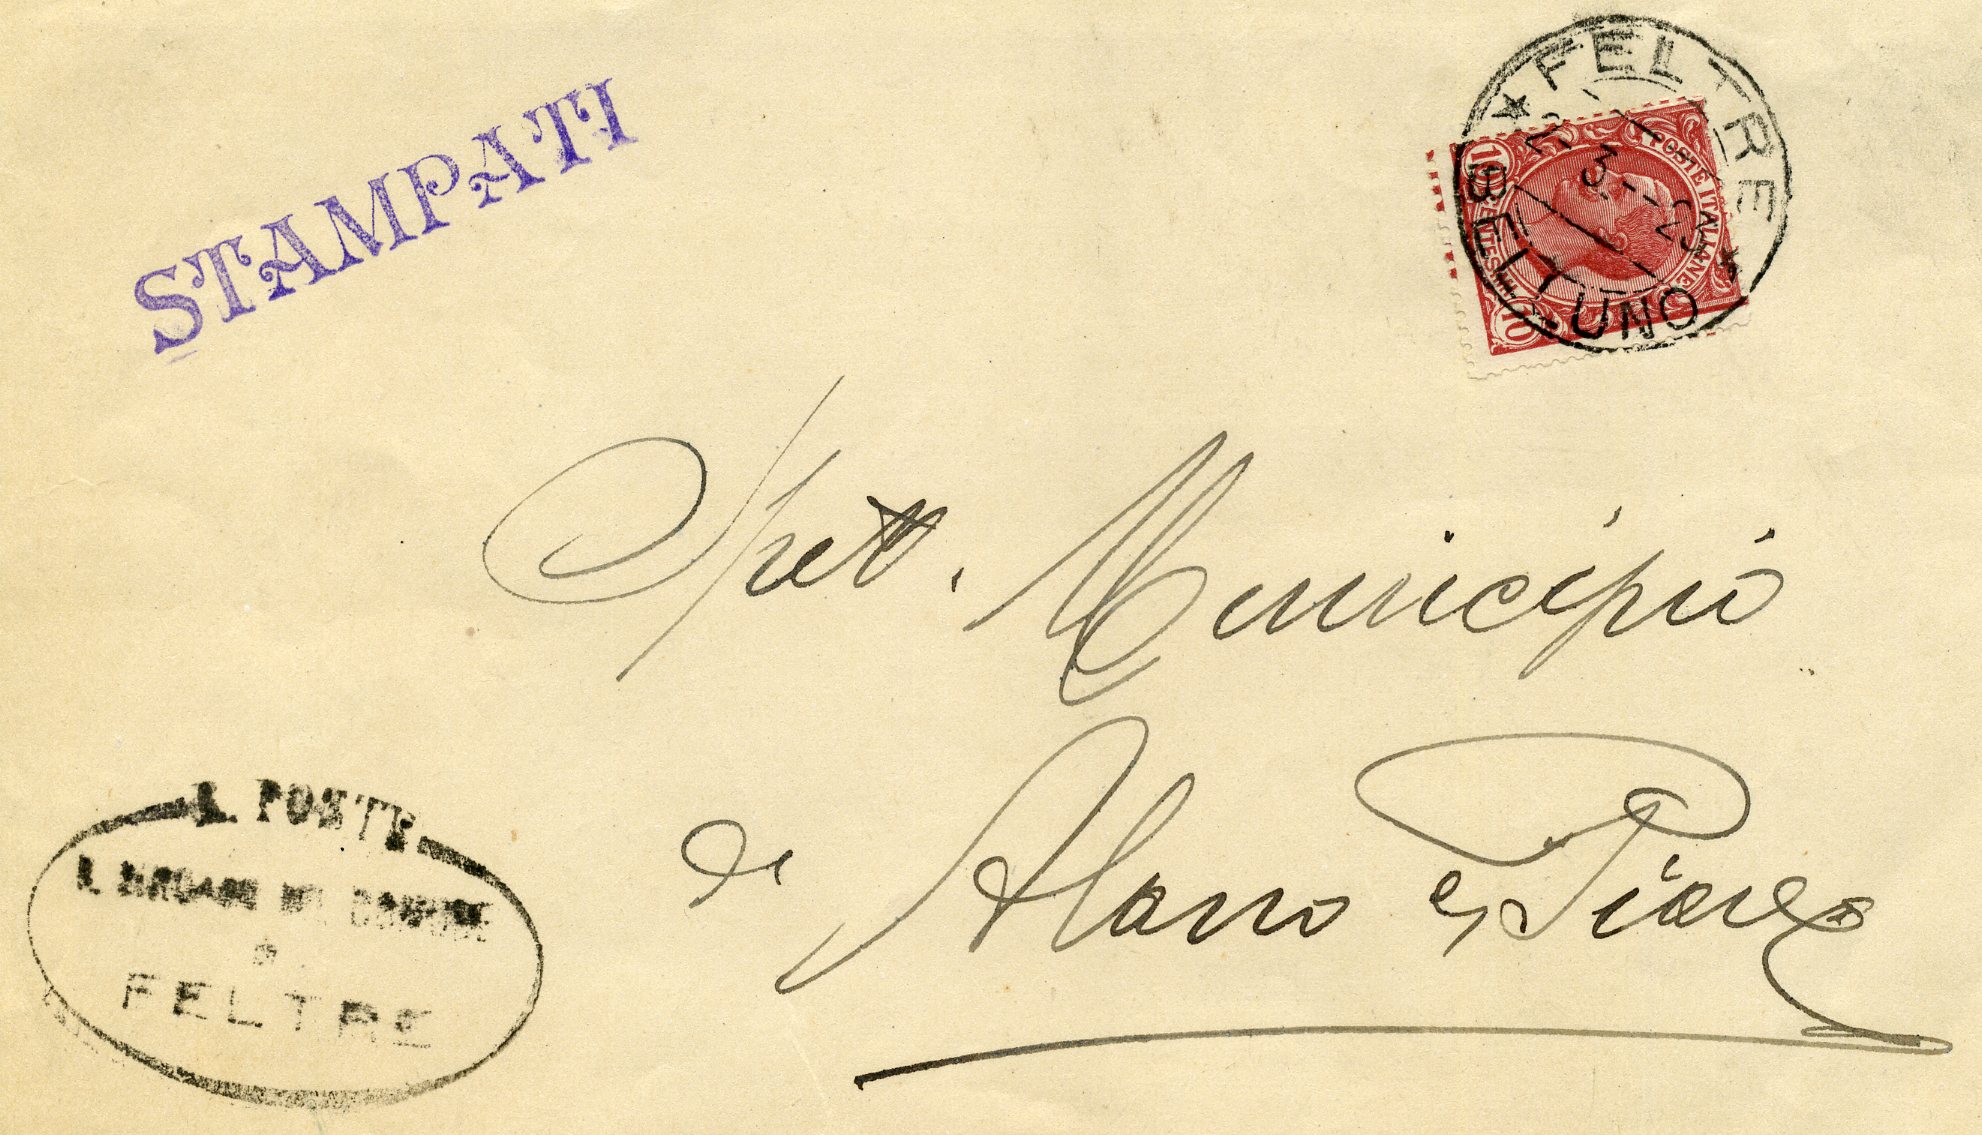 STAMPATI
★ FELTRE ★
BELLUNO
POSTE ITALIANE
CENTESIMI
10 10
Spett. Municipio
di Alano di Piave
R. POSTE
FELTRE